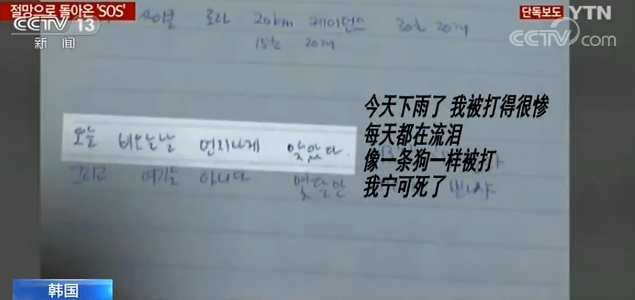 절망으로 돌아온 'SOS'
CCTV 13
新闻
단독보도 YTN
CCTV.com
로라 20km 케이던스 30초 20개
15초 20개
오늘 비오는날 먼지나게 맞았다.
今天下雨了 我被打得很惨
每天都在流泪
像一条狗一样被打
我宁可死了
그리고 여기는 아니다 몇달만
韩国